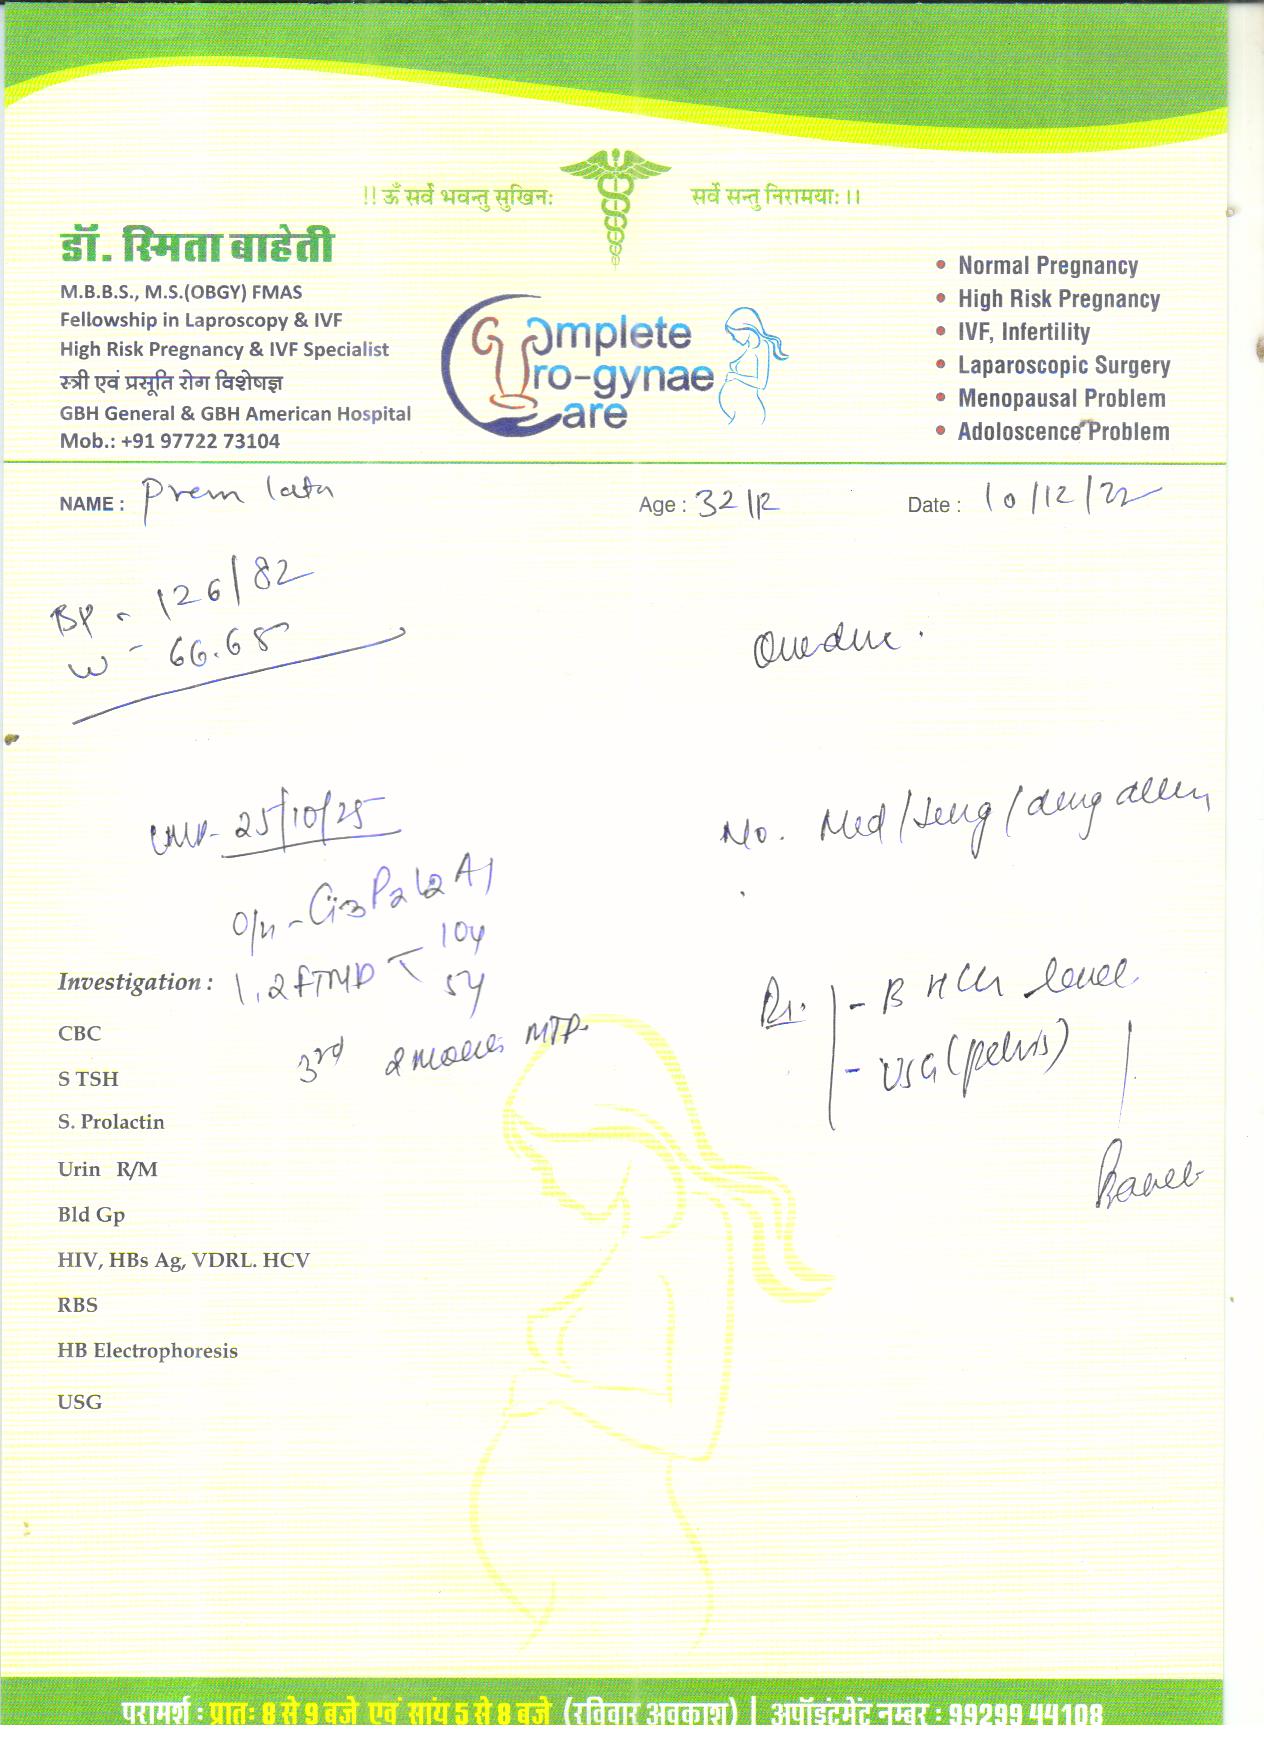 !! ॐ सर्वे भवन्तु सुखिन: सर्वे सन्तु निरामया: ।।
डॉ. स्मिता बाहेती
M.B.B.S., M.S.(OBGY) FMAS
Fellowship in Laproscopy & IVF
High Risk Pregnancy & IVF Specialist
स्त्री एवं प्रसूति रोग विशेषज्ञ
GBH General & GBH American Hospital
Mob.: +91 97722 73104
Complete
Uro-gynae
Care
• Normal Pregnancy
• High Risk Pregnancy
• IVF, Infertility
• Laparoscopic Surgery
• Menopausal Problem
• Adoloscence Problem
NAME : Prem lata Age : 32 Date : 10/12/22
BP - 126/82
W - 66.65
Overdue.
LMP - 25/10/25
No. Med/Surg/drug
O/H - G3P2L2A1
1,2 FTND 10y
5y
3rd 2 MTP
- B HCG level
- USG (pelvis)
Investigation :
CBC
S TSH
S. Prolactin
Urin R/M
Bld Gp
HIV, HBs Ag, VDRL. HCV
RBS
HB Electrophoresis
USG
परामर्श : प्रात: 8 से 9 बजे एवं सांय 5 से 8 बजे (रविवार अवकाश) | अपॉइंटमेंट नम्बर : 99299 44108